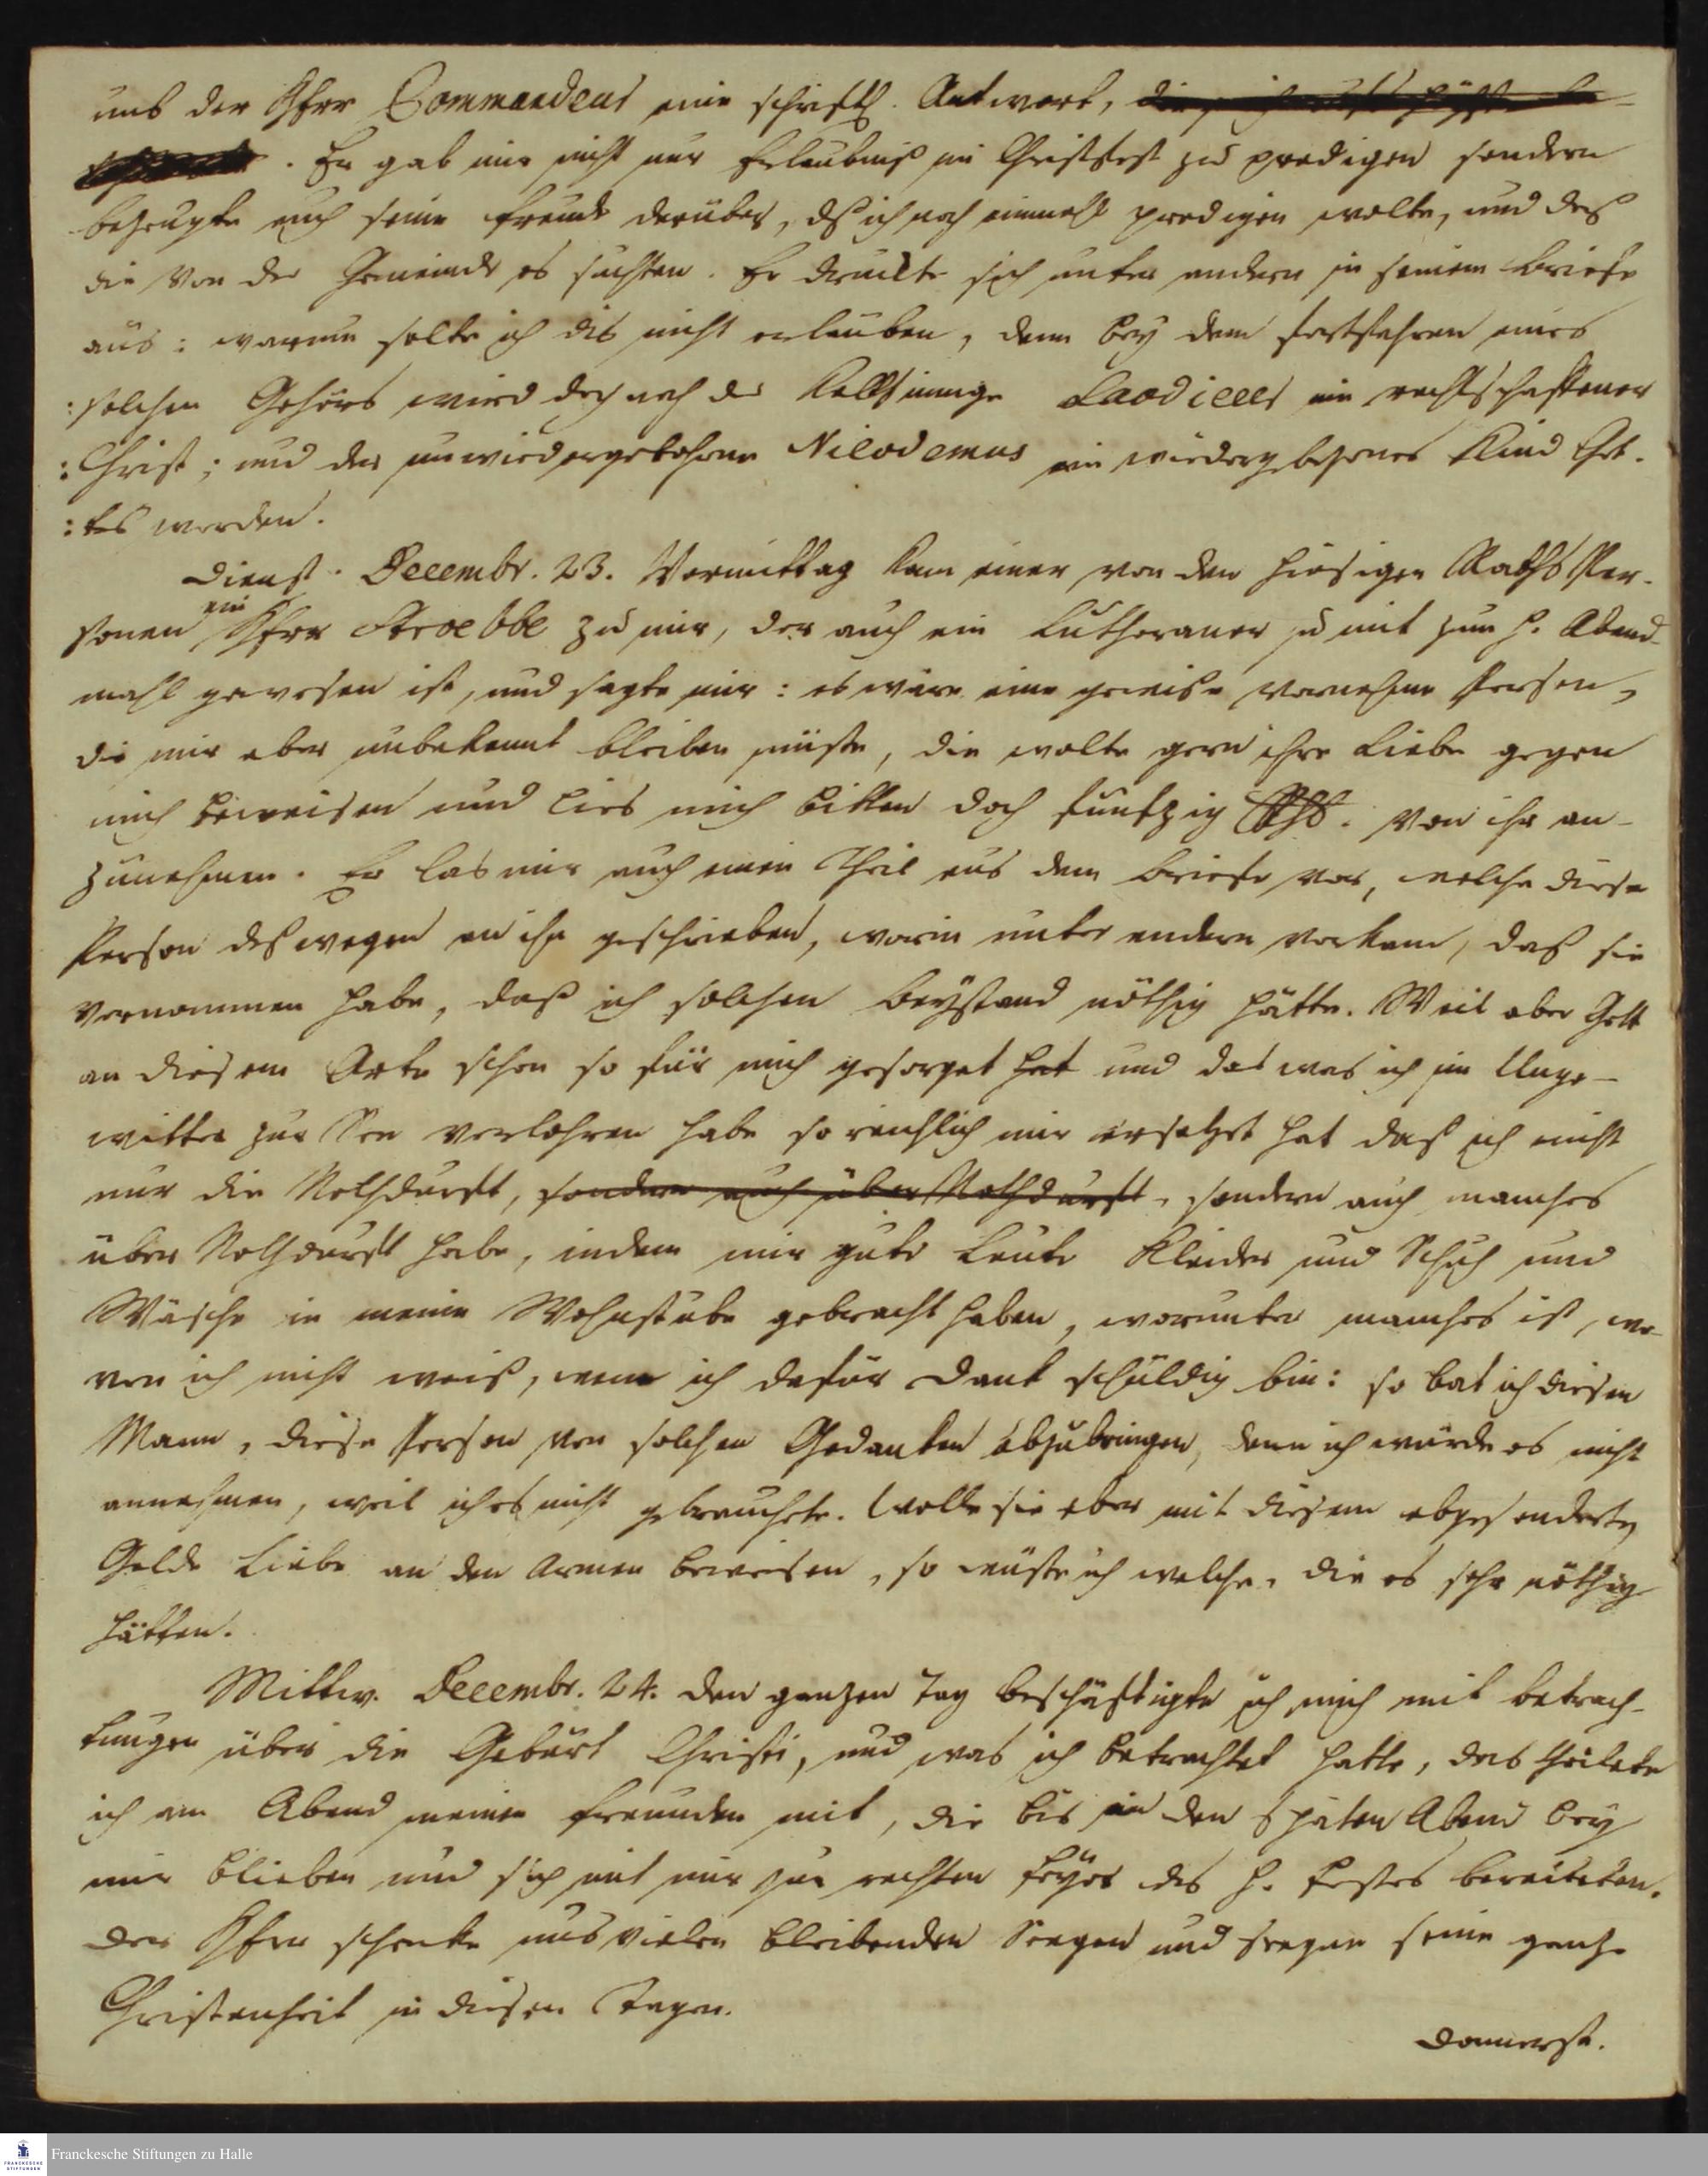 uns der Herr Commandeur eine schriftl. Antwort,
. Er gab mir nicht nur Erlaubniß im Christfest zu predigen sondern
bezeugte auch seine Freude darüber, dß ich noch einmahl predigen wolte, und daß
die von der Gemeinde es suchten. Er druckte sich unter andern in seinem Briefe
aus: warum solte ich dis nicht erlauben, denn bey dem fortfahren eines
: solchen Gehörs wird doch noch der kaltsinnige Laodiceer ein rechtschaffener
: Christ; und der unwiedergebohrne Nicodemus ein wiedergebohrnes Kind Got-
: tes werden.
Dienst. Decembr. 23. Vormittag kam einer von den hiesigen Raths Per-
sonen ein Herr Stroebbe zu mir, der auch ein Lutheraner u mit zum H. Abend-
mahl gewesen ist, und sagte mir: es wäre eine gewiße vornehme Person,
die mir aber unbekannt bleiben müste, die wolte gern ihre Liebe gegen
mich beweisen und lies mich bitten doch funfzig Rthl. von ihr an-
zunehmen. Er las mir auch einen Theil aus dem Briefe vor, welche diese
Person deßwegen an ihn geschrieben, worin unter andern vorkam, daß sie
vernommen habe, daß ich solchen Beystand nöthig hätte. Weil aber Gott
an diesem Orte schon so für mich gesorget hat und das was ich im Unge-
witter zur See verlohren habe so reichlich mir ersetzet hat daß ich nicht
nur die Nothdurft, sondern auch über Nothdurft, sondern auch manches
über Nothdurft habe, indem mir gute Leute Kleider und Schuh und
Wäsche in meine Wohnstube gebracht haben, worunter manches ist, wo-
von ich nicht weiß, wem ich dafür Dank schuldig bin: so bat ich diesen
Mann, diese Person von solchen Gedanken abzubringen, denn ich würde es nicht
annehmen, weil ich es nicht gebrauchte. Wolle sie aber mit diesem abgesonderten
Gelde Liebe an den Armen beweisen, so wüste ich welche, die es sehr nöthig
hätten.
Mittw. Decembr. 24. den ganzen Tag beschäftigte ich mich mit betrach-
tungen über die Geburt Christi, und was ich betrachtet hatte, das theilete
ich am Abend meinen Freunden mit, die bis in den späten Abend bey
mir blieben und sich mit mir zur rechten Feyer des H. Festes bereiteten.
Der Herr schenke uns vielen bleibenden Seegen und seegne seine ganze
Christenheit in diesen Tagen.
Donnerst.
Franckesche Stiftungen zu Halle